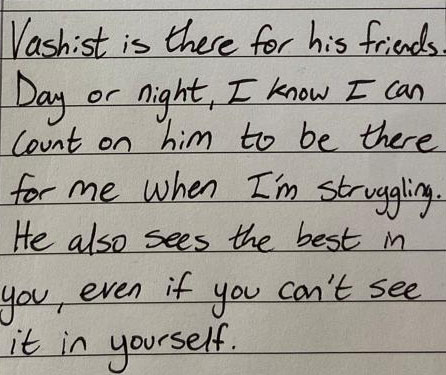 Vashist is there for his friends.
Day or night, I know I can
count on him to be there
for me when I'm struggling.
He also sees the best in
you, even if you can't see
it in yourself.